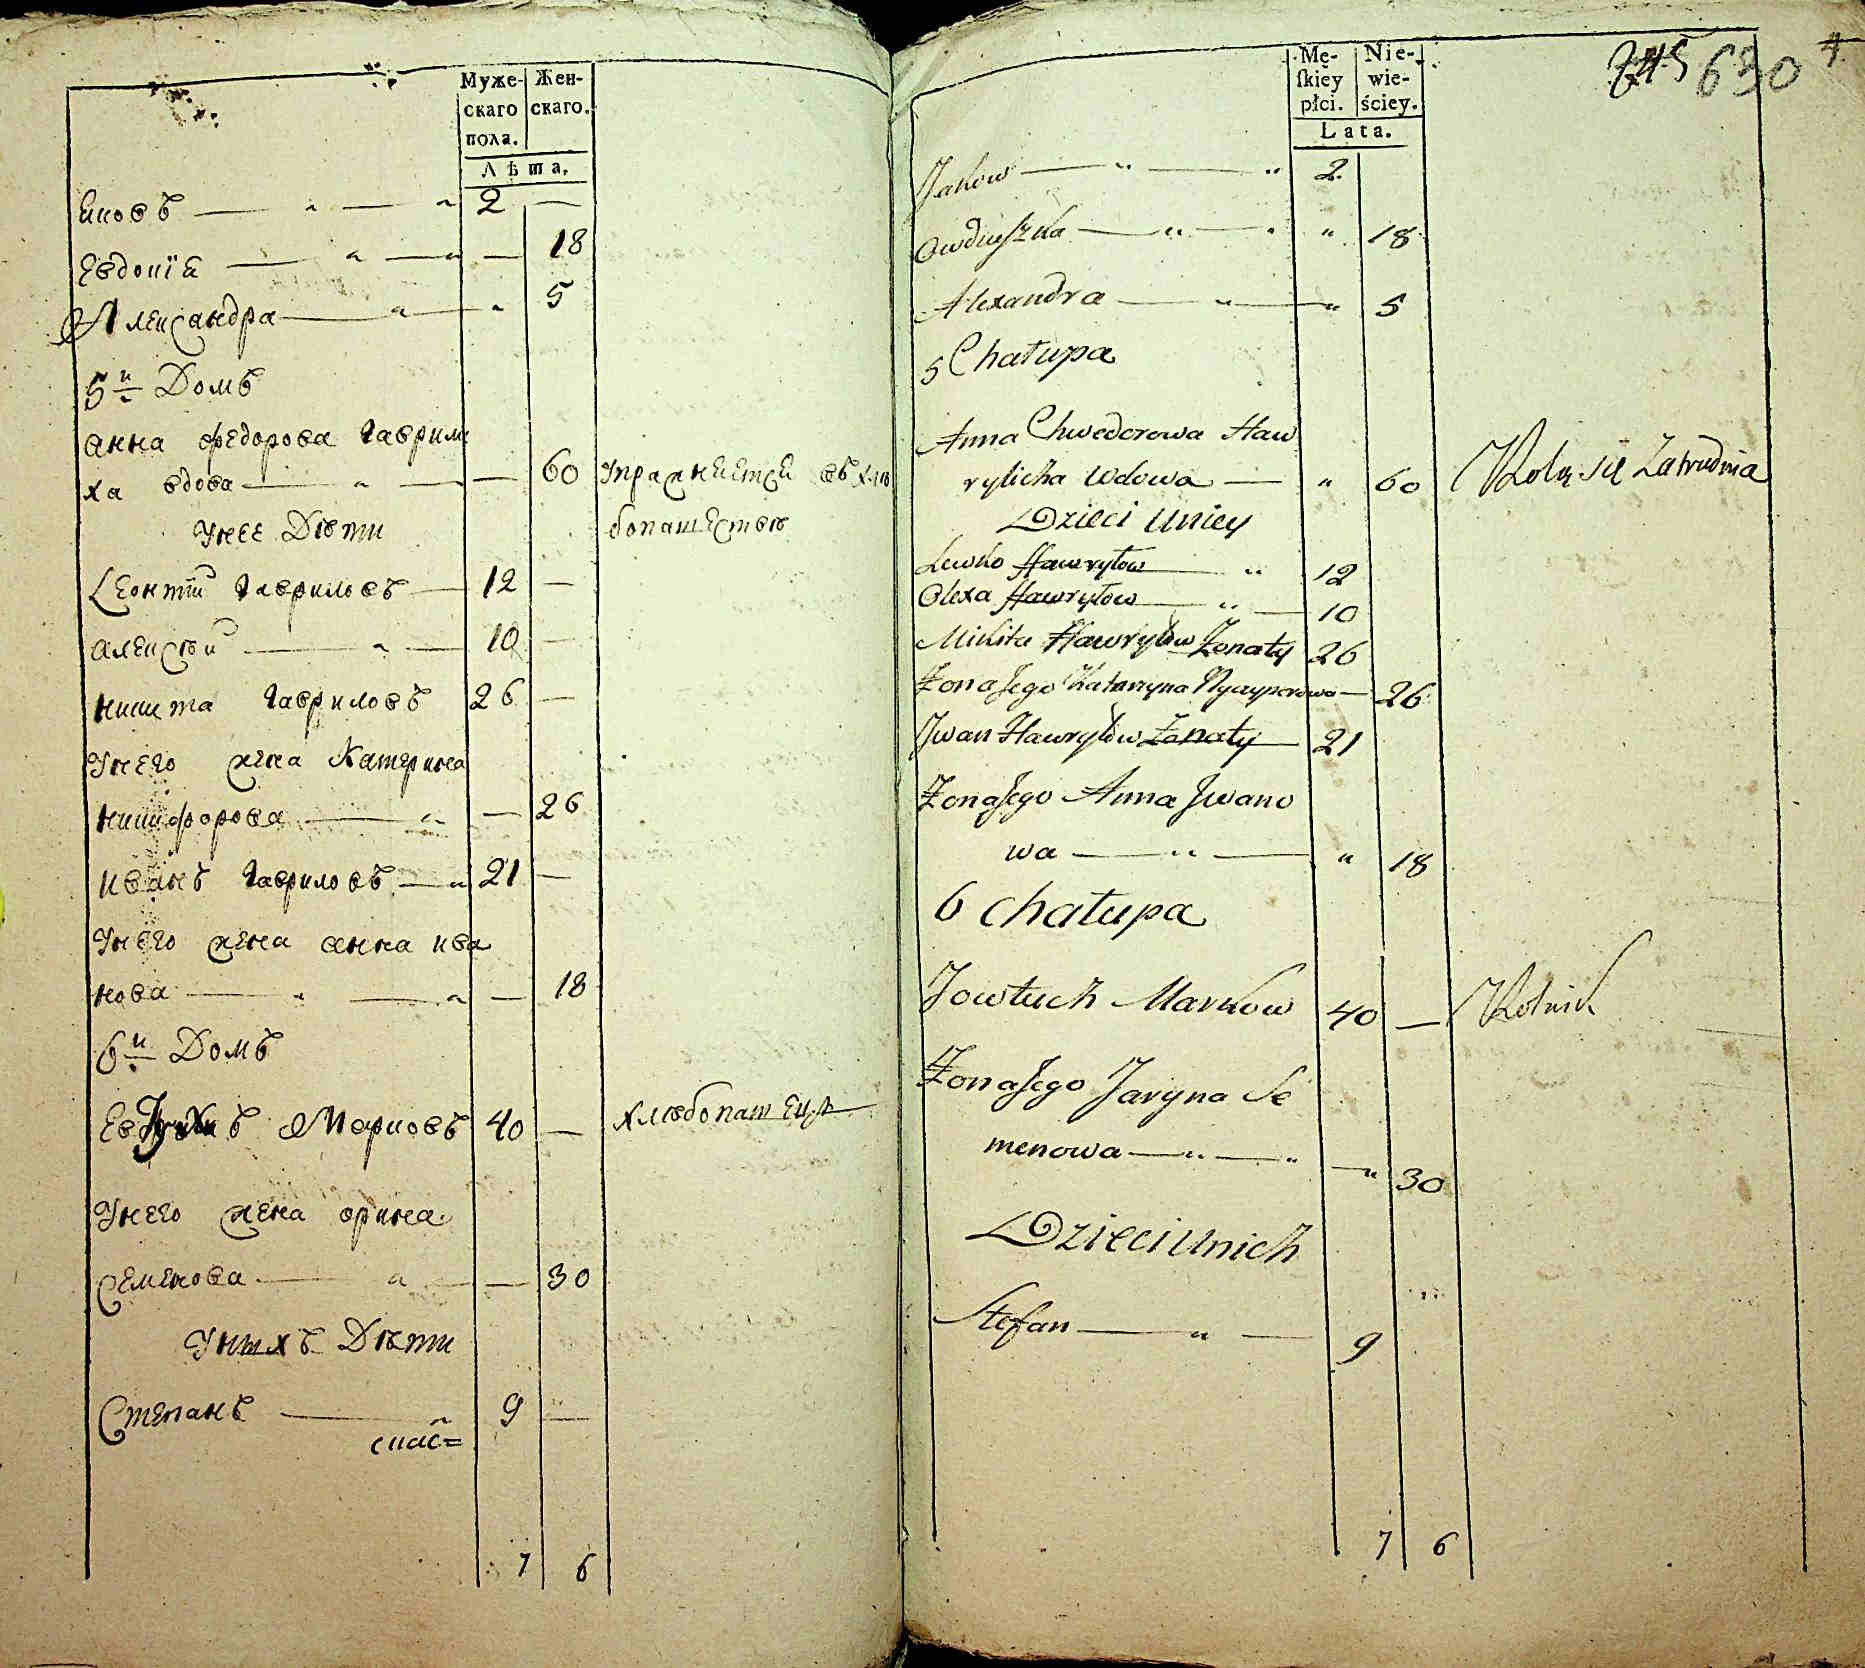 Муже- Жен-
скаго скаго.
пола.
Лѣта.
Яковъ — " — " 2 —
Евдокїя — " — " — 18
Александра — " — " 5
5й Домъ
Анна Федорова Гаврили
ха вдова — " — — 60 Упражняется въ хлѣ
бопашествѣ
У нее Дѣти
Леонтїй Гавриловъ — 12 —
Алексѣй — " — 10 —
Никита Гавриловъ 26 —
У него жена Катерина
Никифорова — " — 26
Иванъ Гавриловъ — " 21 —
У него жена Анна Ива
нова — " — " — 18
6й Домъ
Марковъ 40 — хлѣбопашецъ
У него жена Орина
Семенова — " — — 30
У нихъ Дѣти
Степанъ — " 9 —
7 6
Mę- Nie-
ſkiey wie-
płci. ściey.
Lata.
745 630 4
Jakow — " — " 2
Owdiuszka — " — " " 18
Alexandra — " — " 5
5 Chałupa
Anna Chwedorowa Haw
rylicha Wdowa — " 60 Rolą się Zatrudnia
Dzieci u niey
Lewko Hawryłow — " 12
Olexa Hawryłow — " — 10
Mikita Hawryłow Żonaty 26
Żona Jego Katarzyna Nyczyporowa — 26
Jwan Hawryłow Żonaty 21
Żona Jego Anna Jwano
wa — " — " 18
6 Chałupa
Jowtuch Markow 40 — Rolnik
Żona Jego Jaryna Se
menowa — " — " — " 30
Dzieci u nich
Stefan — " — 9
7 6